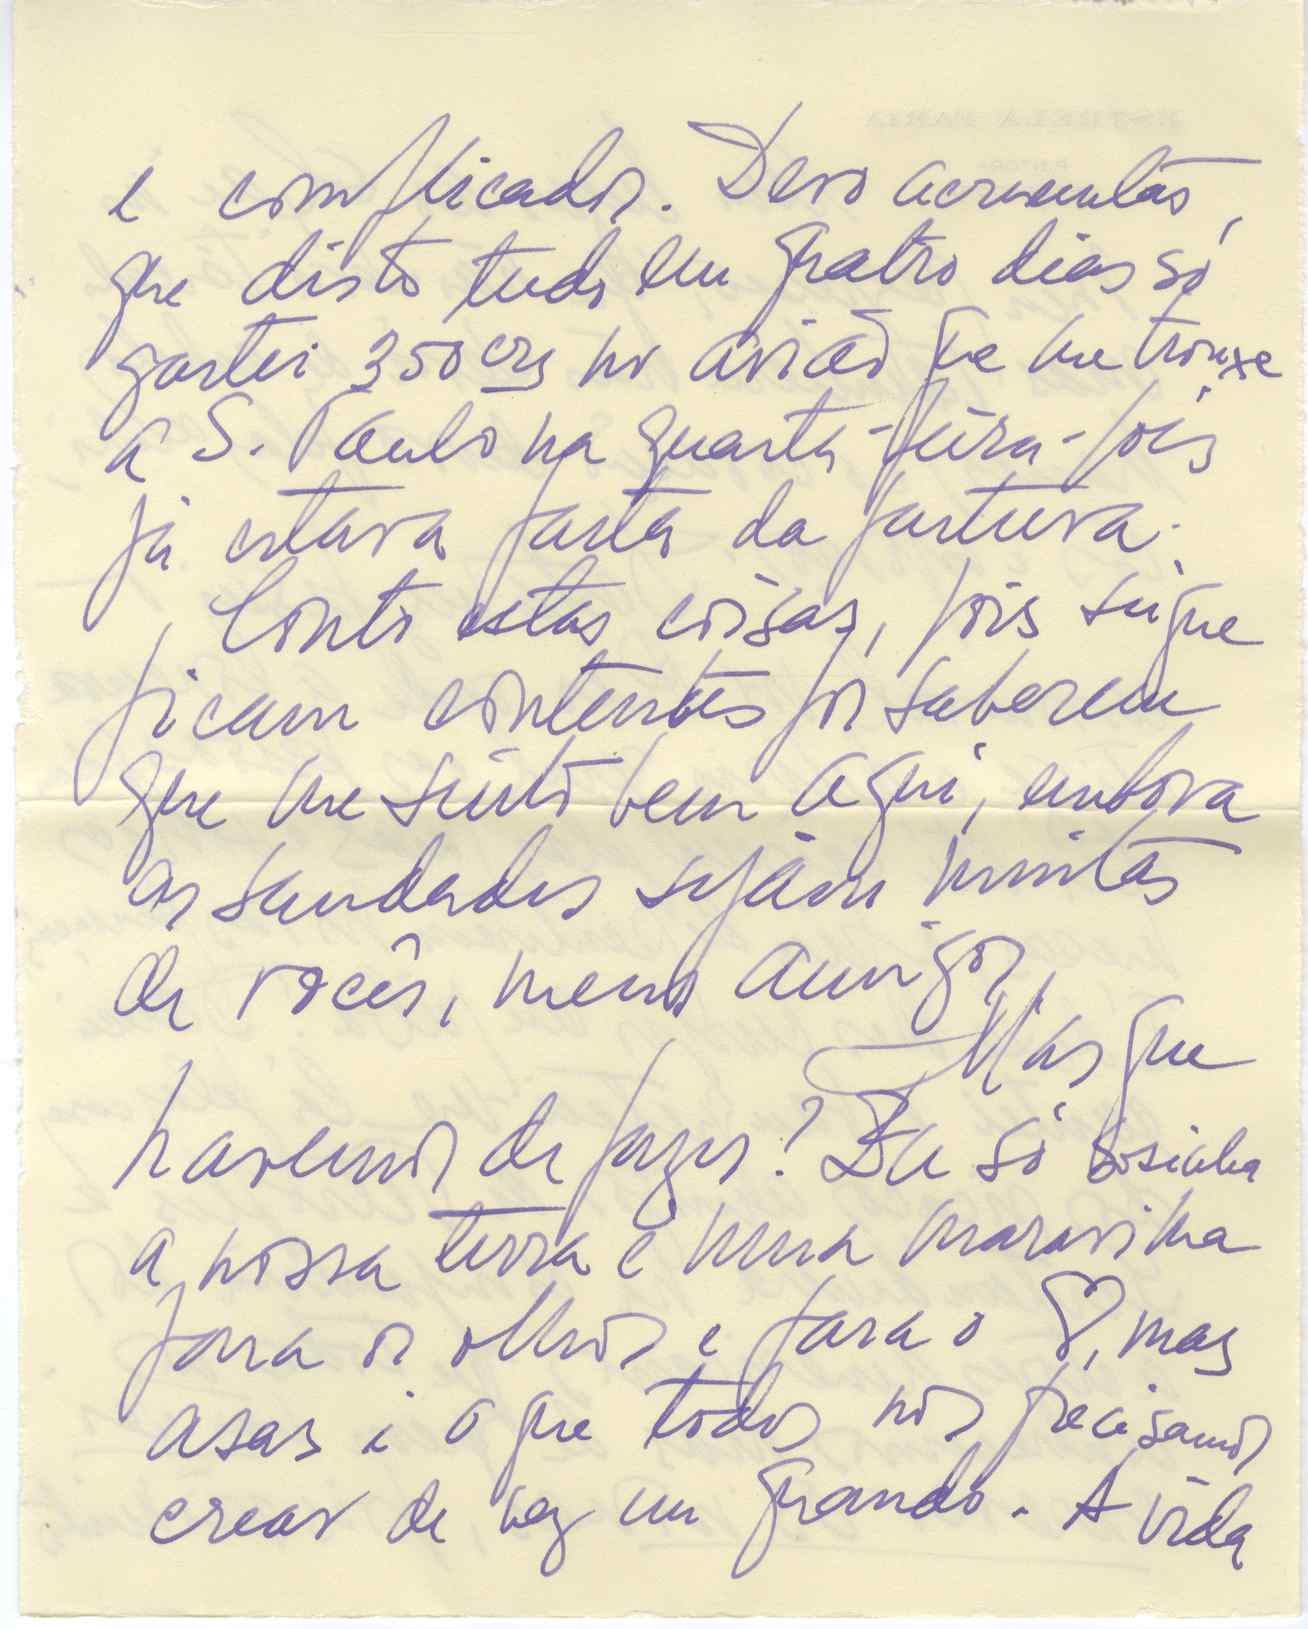 e complicados. Devo acrescentar,
que disto tudo em quatro dias só
gastei 350 crs no avião que me trouxe
a S. Paulo na quarta-feira - pois
já estava farta da fartura.
Conto estas coisas, pois sei que
ficam contentes por saberem
que me sinto bem aqui, embora
as saudades sejam muitas
de vocês, meus amigos,
Mas que
havemos de fazer? Eu só
a nossa terra é uma maravilha
para os olhos e para o ♡, mas
asas é o que todos nós precisamos
crear de vez em quando. A vida
ESTRELA FARIA
PINTORA